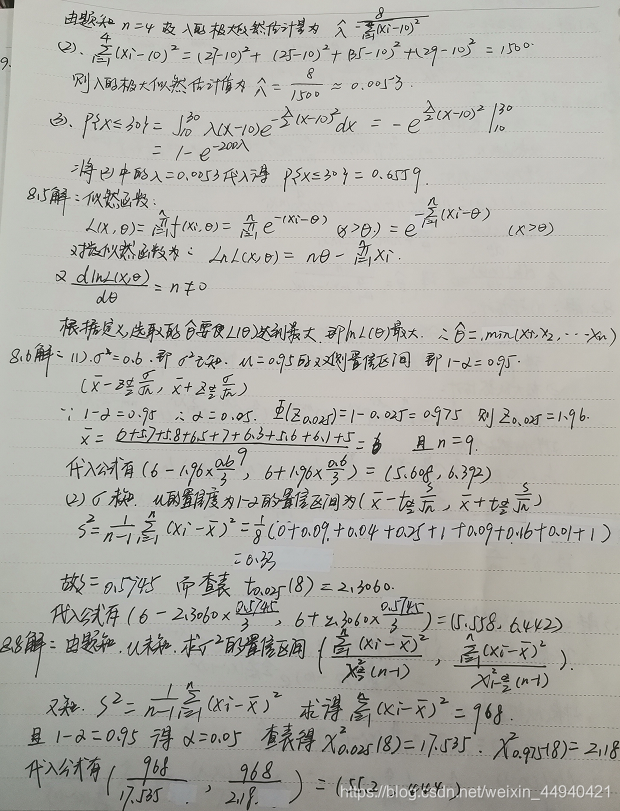 由题知 n=4 故 λ的极大似然估计量为 λ̂ = 8/Σ(xi-10)²
(2). Σ⁴ᵢ₌₁(xi-10)² = (27-10)² + (25-10)² + (35-10)² + (29-10)² = 1500.
则λ的极大似然估计值为 λ̂ = 8/1500 ≈ 0.0053.
(3). P{X≤30} = ∫₁₀³⁰ λ(x-10)e^{-λ/2(x-10)²}dx = -e^{λ/2(x-10)²}|₁₀³⁰
= 1-e^{-200λ}
∴将(2)中的λ=0.0053代入得 P{X≤30} = 0.6559.
8.5解: 似然函数:
L(x,θ) = ∏ⁿᵢ₌₁f(xi,θ) = ∏ⁿᵢ₌₁ e^{-(xi-θ)} (x>θ) = e^{-Σⁿᵢ₌₁(xi-θ)} (x>θ)
对数似然函数为: LnL(x,θ) = nθ - Σⁿᵢ₌₁xi.
又 dlnL(x,θ)/dθ = n≠0
根据定义,选取的θ要使L(θ)达到最大,即lnL(θ)最大. ∴θ̂ = min(x1,x2,…xn)
8.6解: (1).σ²=0.6.即σ²已知. u=0.95的双侧置信区间 即1-α=0.95.
(x̄-z_{α/2} σ/√n, x̄+z_{α/2} σ/√n)
∵ 1-α=0.95 ∴ α=0.05. Φ(Z0.025)=1-0.025=0.975 则Z0.025=1.96.
x̄ = (6+5.7+5.8+6.5+7+6.3+5.6+6.1+5)/9 = 6 且n=9.
代入公式有(6-1.96×0.6/3, 6+1.96×0.6/3) = (5.608, 6.392)
(2) σ未知. u的置信度为1-α的置信区间为(x̄-t_{α/2} s/√n, x̄+t_{α/2} s/√n)
S² = 1/(n-1) Σⁿᵢ₌₁(xi-x̄)² = 1/8(0+0.09+0.04+0.25+1+0.09+0.16+0.01+1)
=0.33
故s=0.5745 而查表 t0.025(8)=2.3060.
代入公式有(6-2.3060×0.5745/3, 6+2.3060×0.5745/3) = (5.558, 6.442)
8.8解: 由题知,u未知.求σ²的置信区间(Σⁿᵢ₌₁(xi-x̄)²/χ²_{α/2}(n-1), Σⁿᵢ₌₁(xi-x̄)²/χ²_{1-α/2}(n-1)).
又知. S² = 1/(n-1) Σⁿᵢ₌₁(xi-x̄)² 求得Σⁿᵢ₌₁(xi-x̄)² = 968.
且1-α=0.95 得α=0.05 查表得χ²0.025(8)=17.535. χ²0.975(8)=2.18
代入公式有(968/17.535, 968/2.18) = (55.2
https://blog.csdn.net/weixin_44940421